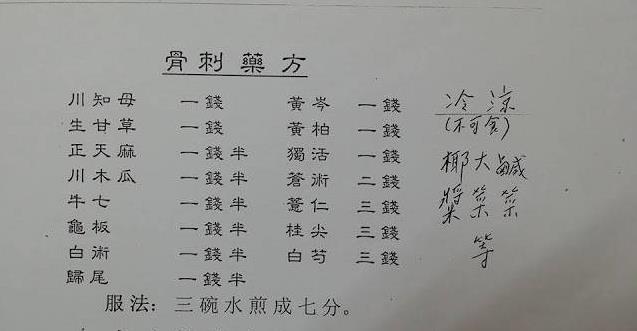 骨刺藥方
川知母 一錢 黃岑 一錢
生甘草 一錢 黃柏 一錢
正天麻 一錢半 獨活 一錢
川木瓜 一錢半 蒼術 二錢
牛七 一錢半 薏仁 三錢
龜板 一錢半 桂尖 三錢
白術 一錢半 白芍 三錢
歸尾 一錢半
服法：三碗水煎成七分。
冷涼
(不可食)
椰大鹹
漿菜菜
等